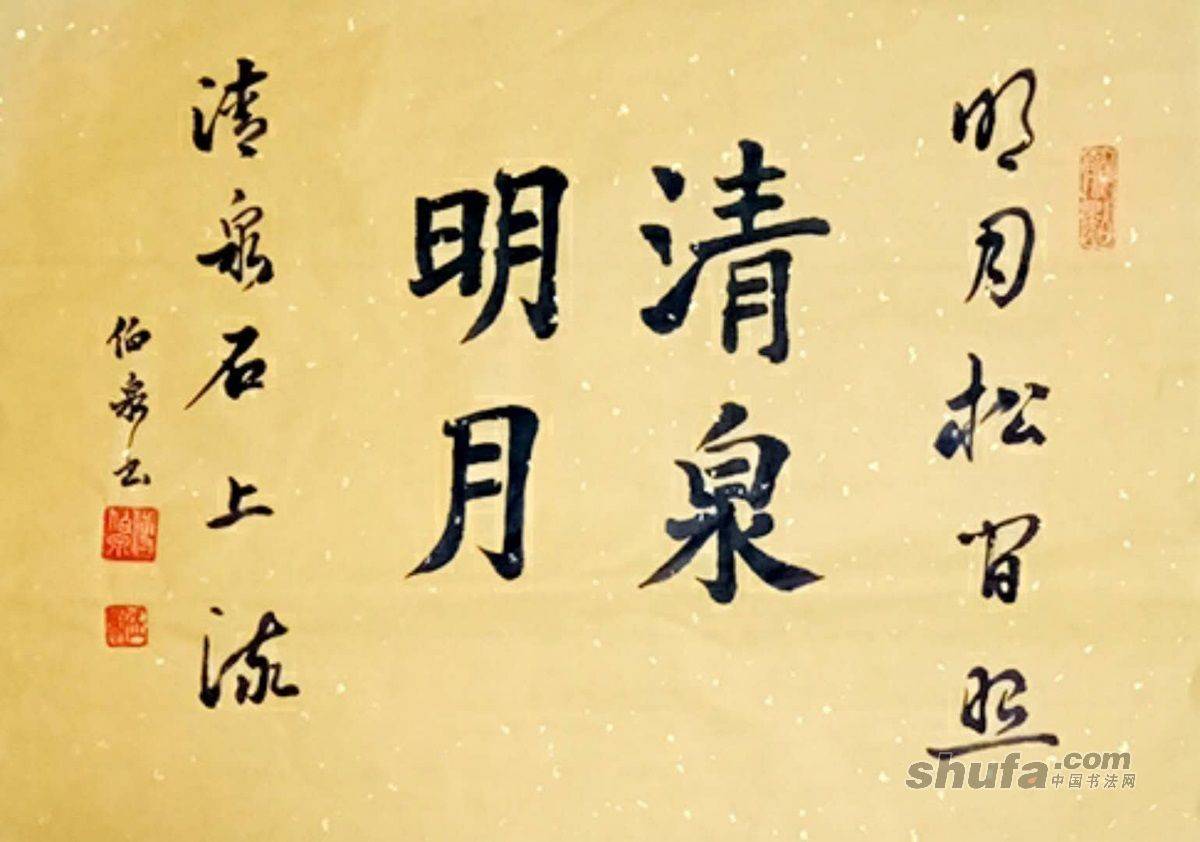 明月松间照
清泉
明月
清泉石上流
伯泉书
shufa.com
中国书法网